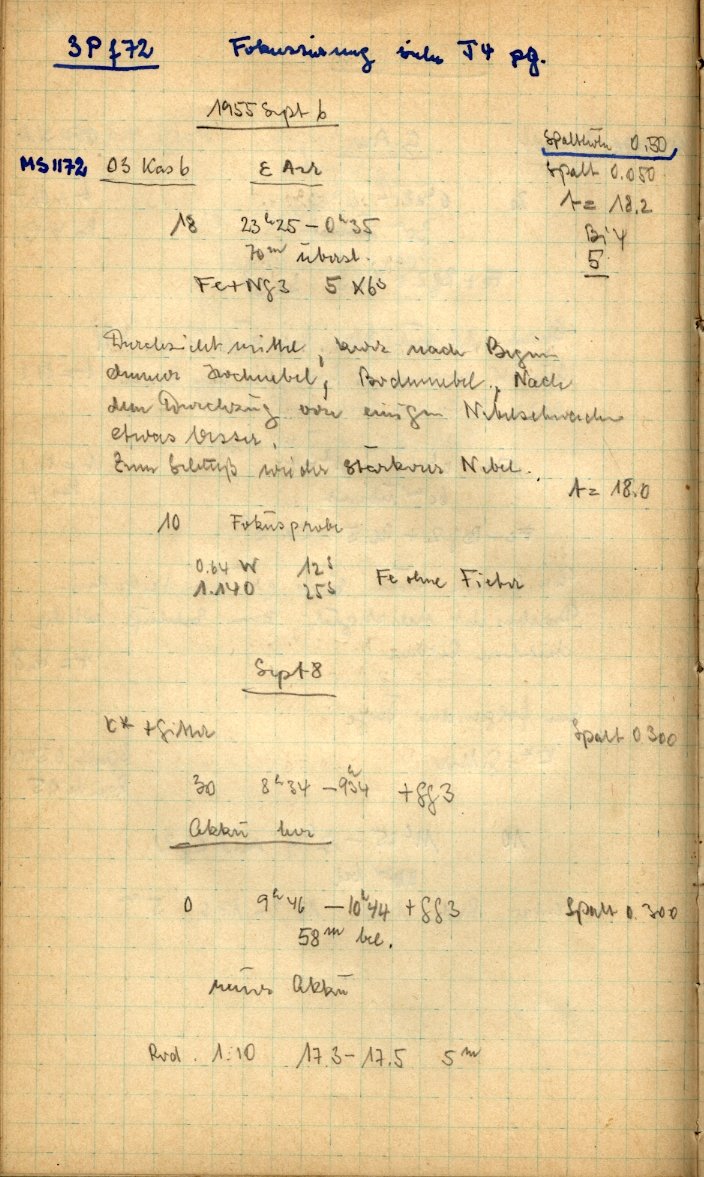 3P f72 Fokussierung siehe J4 pg.
1955 Sept 6
Spalthöhe 0.50
MS 1172 03 Kas 6 ε Aur Spalt 0.050
t = 18.2
18 23h25 – 0h35 Bi 4
70m überst. 5
Fe+Ng3 5 x 6s
Durchsicht mittel, kurz nach Beginn
dünner Hochnebel, Bodennebel, Nach
dem Durchzug von einigen Nebelschwaden
etwas besser.
Zum Schluß wieder stärkerer Nebel.
t = 18.0
10 Fokusprobe
0.64 W 12s
1.140 25s Fe ohne Filter
Sept 8
K* + Gitter Spalt 0.300
30 8h34 – 9h34 + GG3
Akku leer
0 9h46 – 10h44 + GG3 Spalt 0.300
58m bel.
neuer Akku
Rod. 1:10 17.3 – 17.5 5m